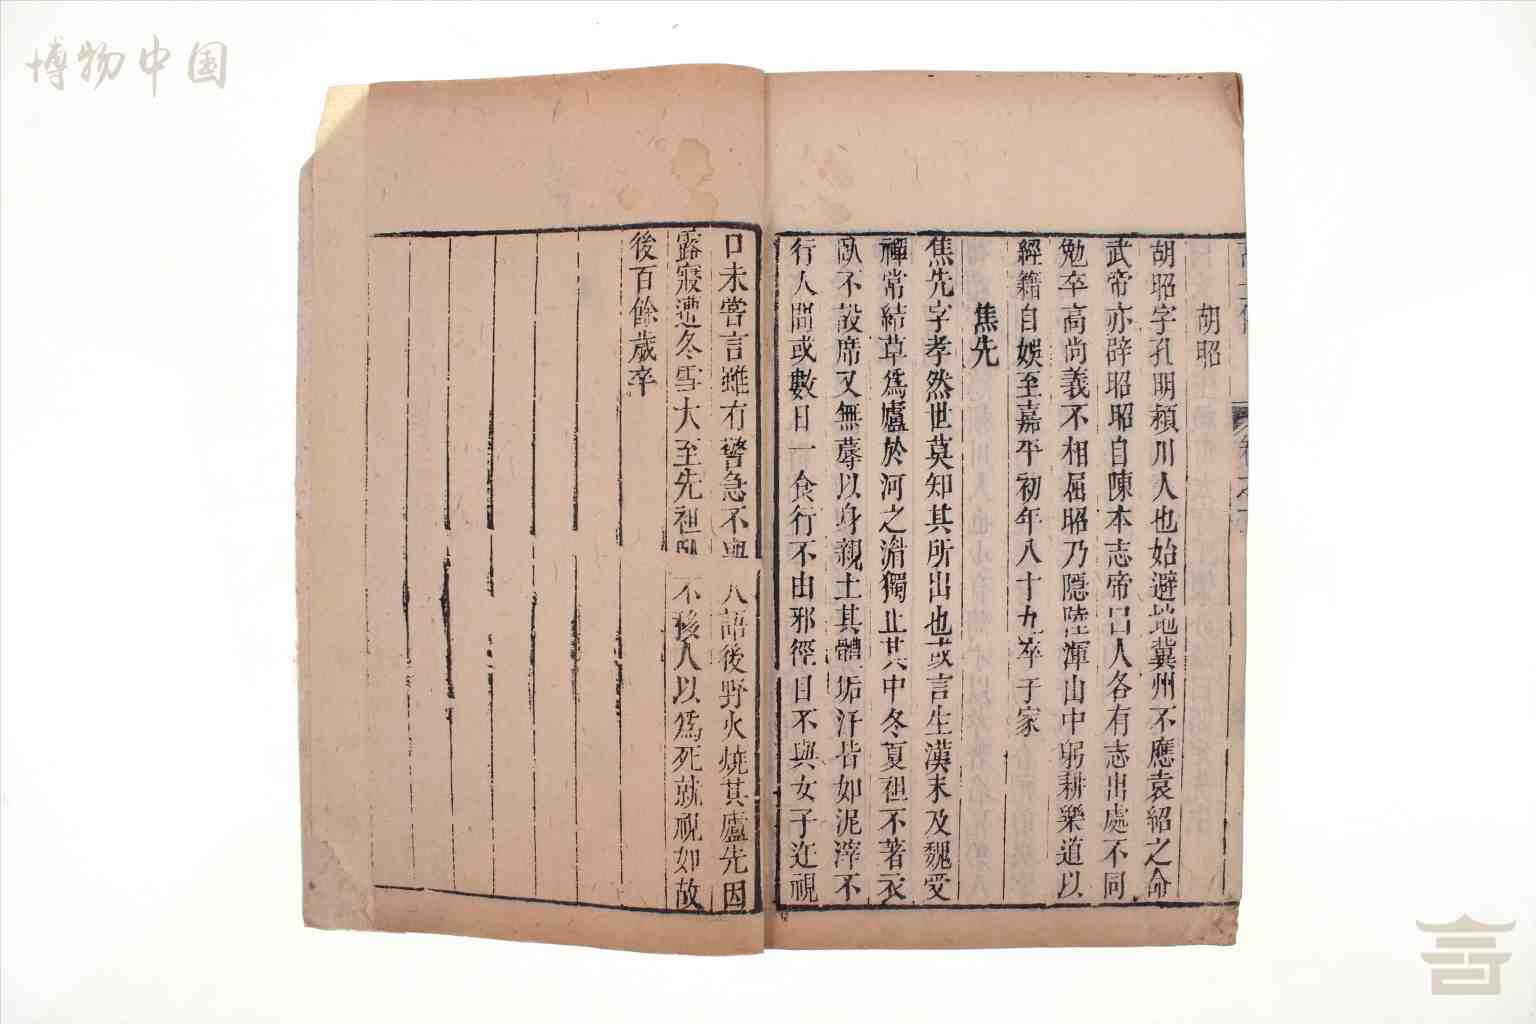 博物中国
胡昭
胡昭字孔明潁川人也始避地冀州不應袁紹之命
武帝亦辟昭昭自陳本志帝曰人各有志出處不同
勉卒高尚義不相屈昭乃隱陸渾山中躬耕樂道以
經籍自娛至嘉平初年八十九卒于家
焦先
焦先字孝然世莫知其所出也或言生漢末及魏受
禪常結草爲廬於河之湄獨止其中冬夏袒不著衣
臥不設席又無蓐以身親土其體垢汙皆如泥滓不
行人間或數日一食行不由邪徑目不與女子迕視
口未嘗言雖有警急不與人語後野火燒其廬先因
露寢遭冬雪大至先袒臥不移人以爲死就視如故
後百餘歲卒